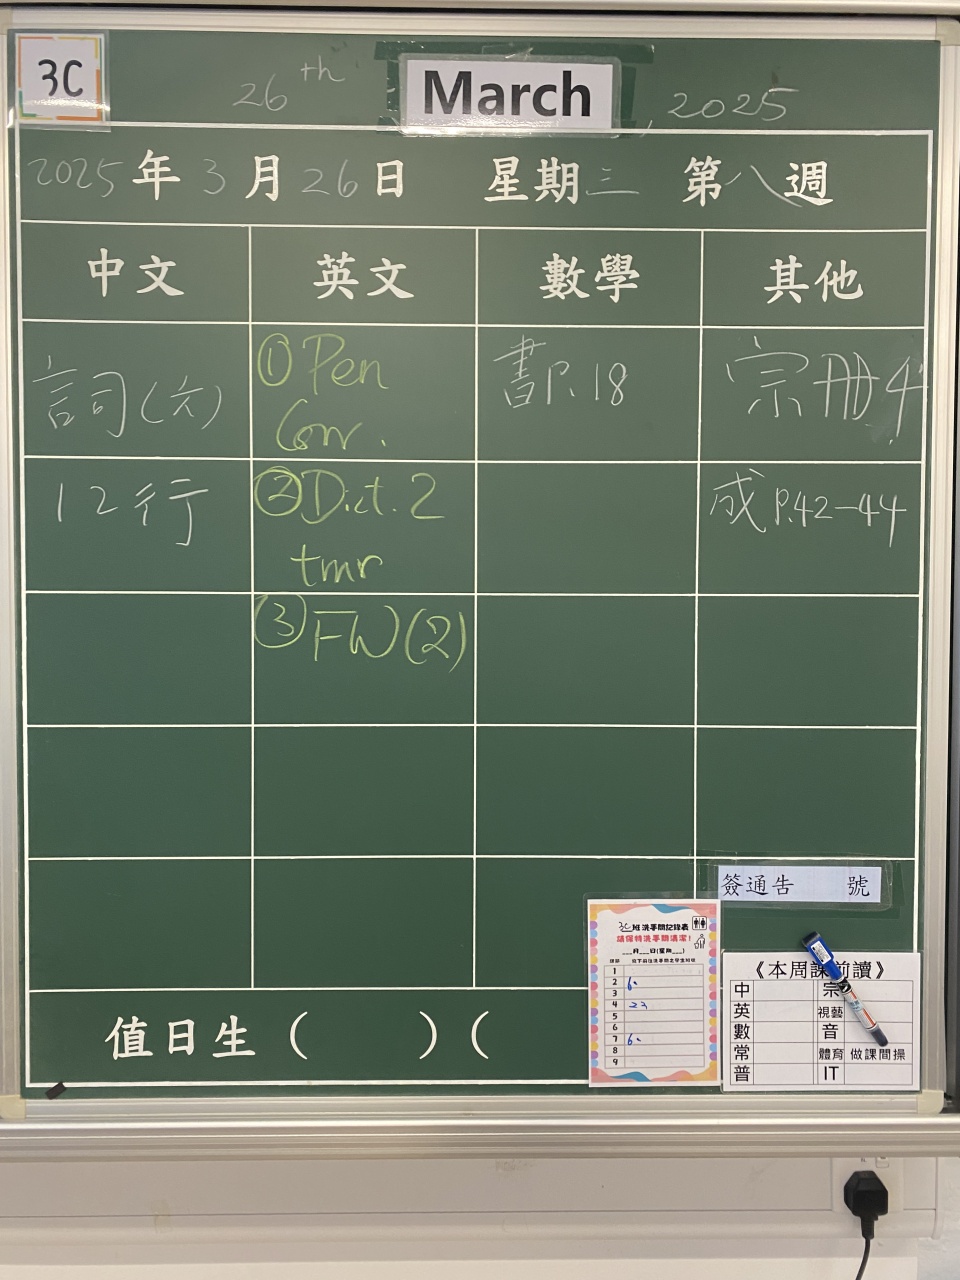 3C
26th March, 2025
2025年3月26日 星期三 第八週
中文 英文 數學 其他
詞(六) ①Pen Corr. 書P.18 宗冊4
12行 ②Dict.2 tmr 成P.42-44
③FW(2)
簽通告 號
值日生( )(
3C班洗手間記錄表
請保持洗手間清潔!
__月__日(星期__)
1
2 6
3
4 23
5
6
7 6
8
9
《本周課前讀》
中 宗
英 視藝
數 音
常 體育 做課間操
普 IT